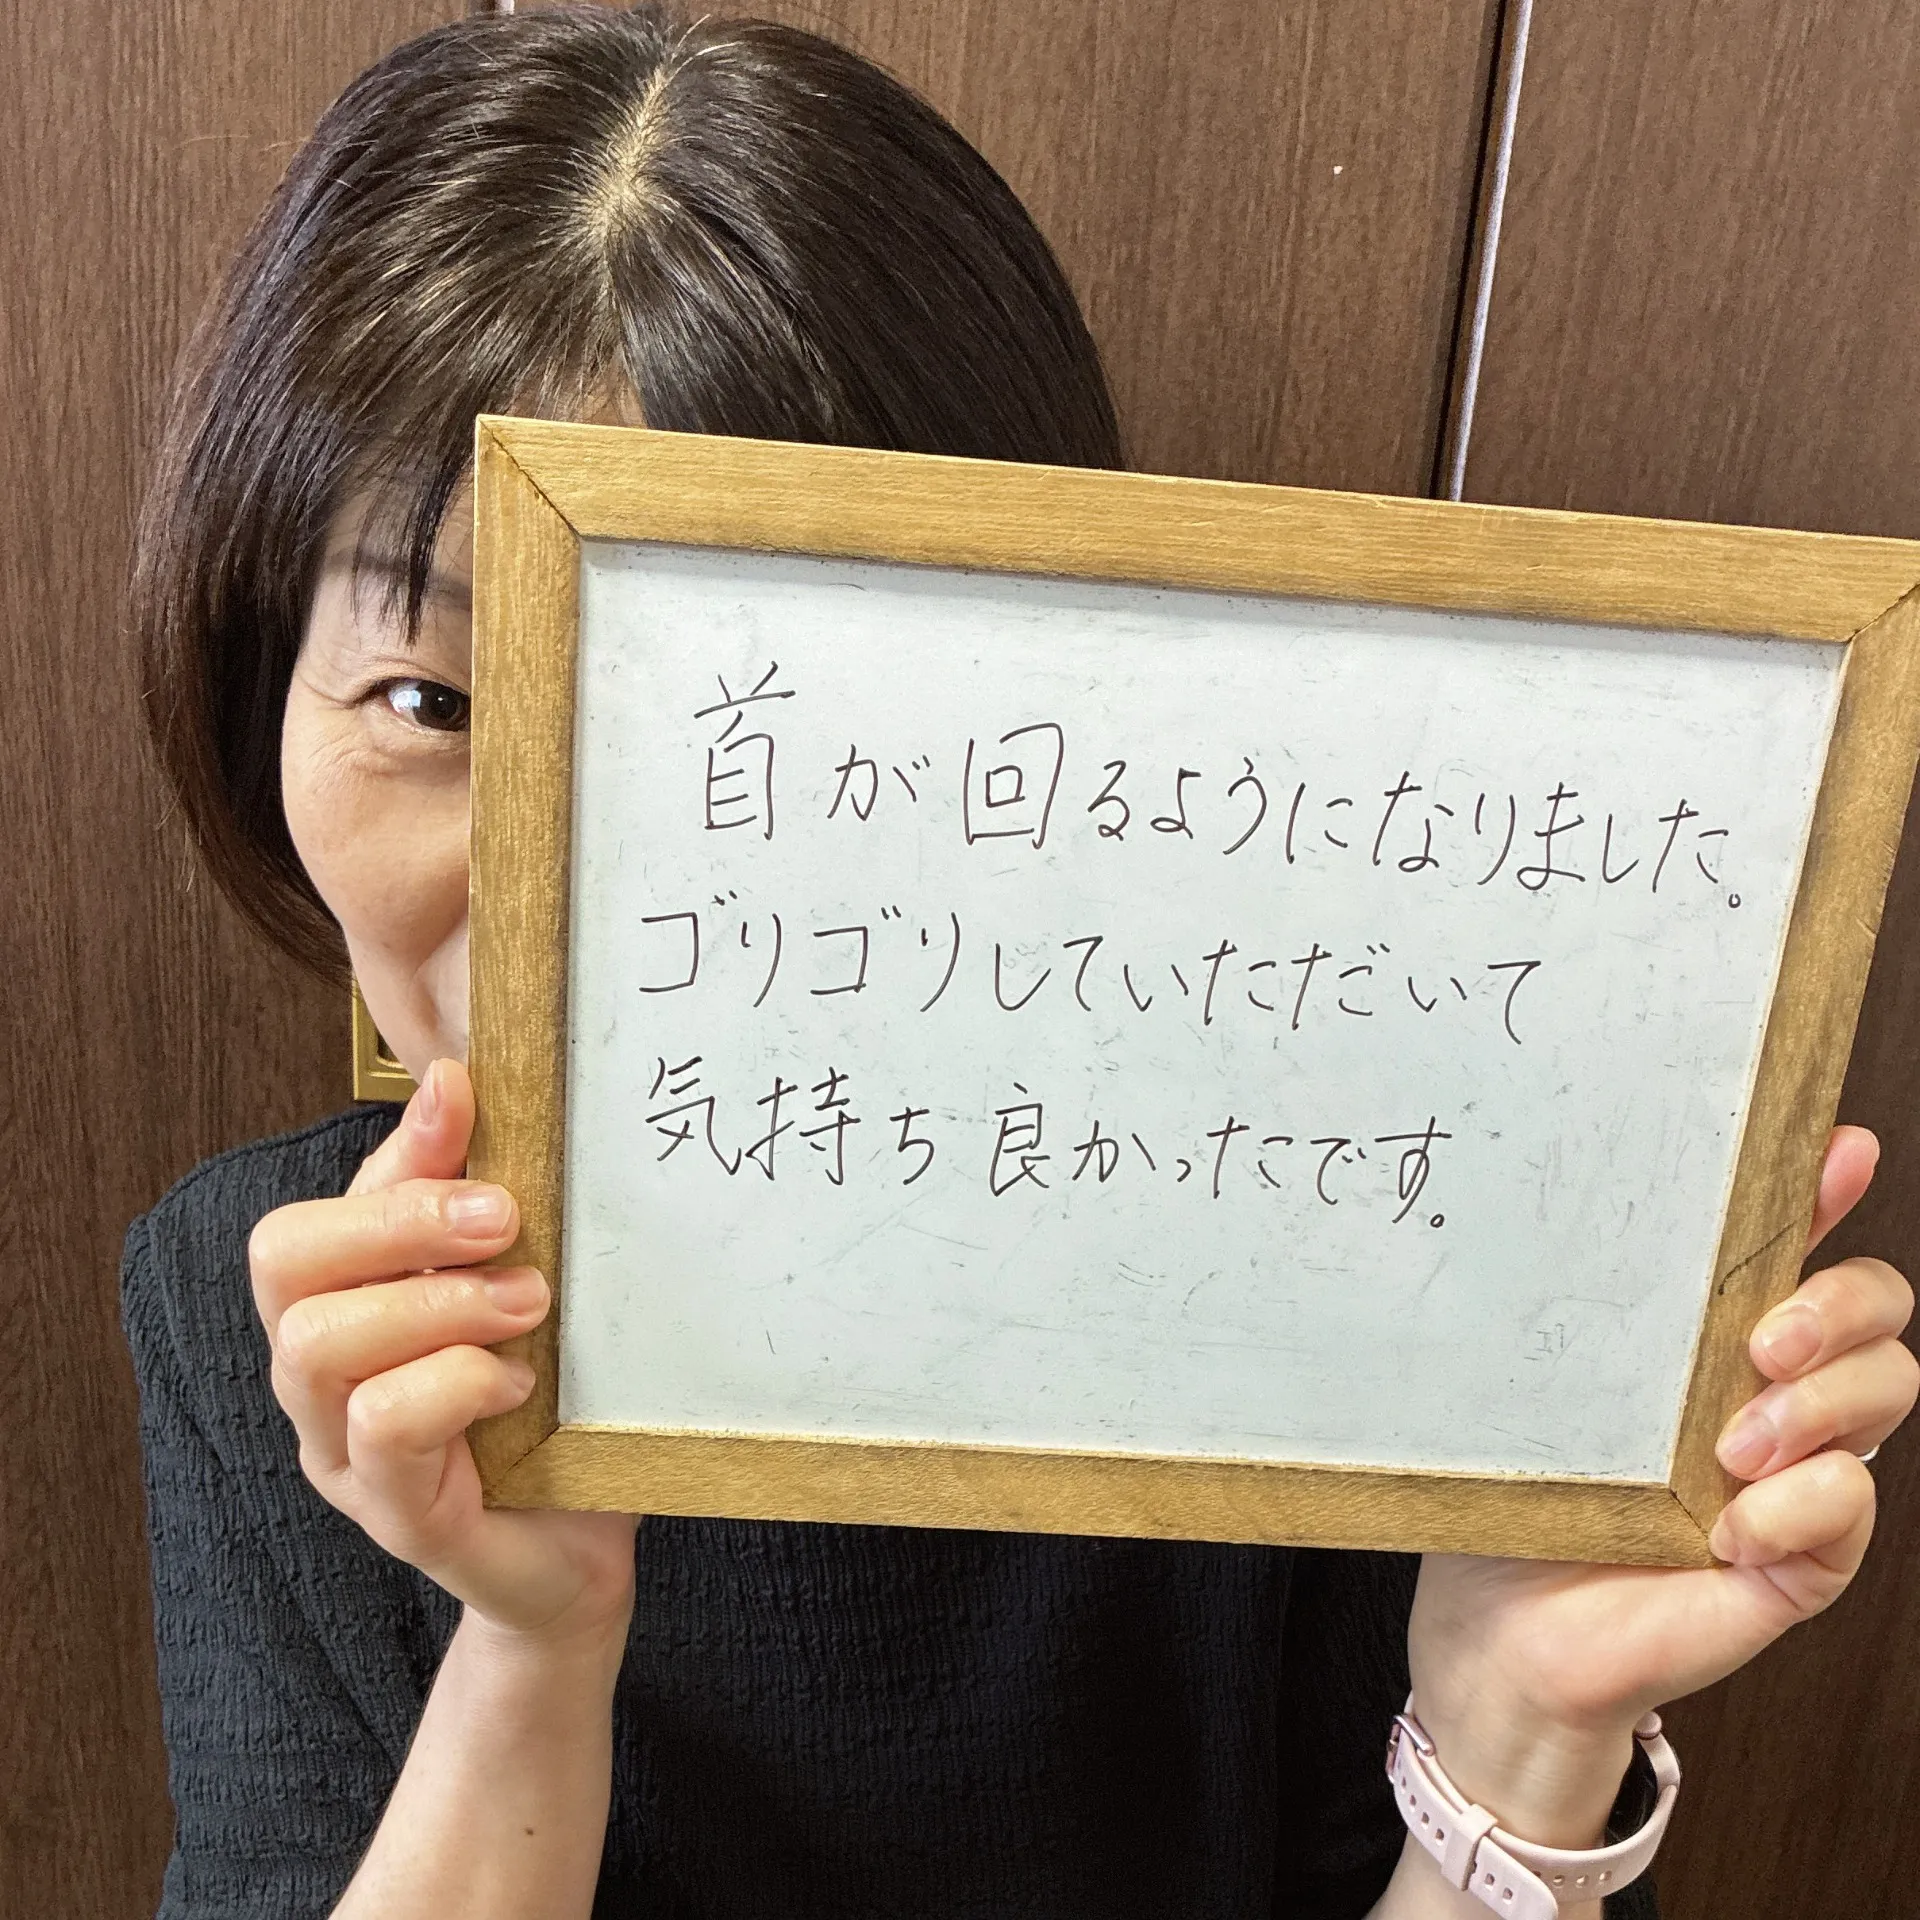 首が回るようになりました。
ゴリゴリしていただいて
気持ち良かったです。